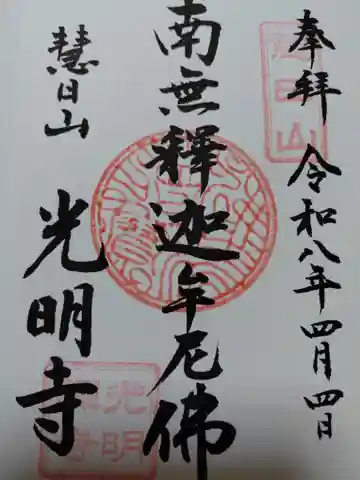 奉拜 令和八年四月四日
慧日山
南無釋迦牟尼佛
慧日山
光明寺
光明禅寺